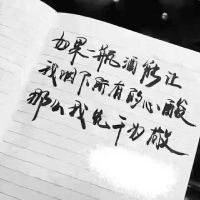 如果一瓶酒能让
我咽下所有的心酸
那么我先干为敬